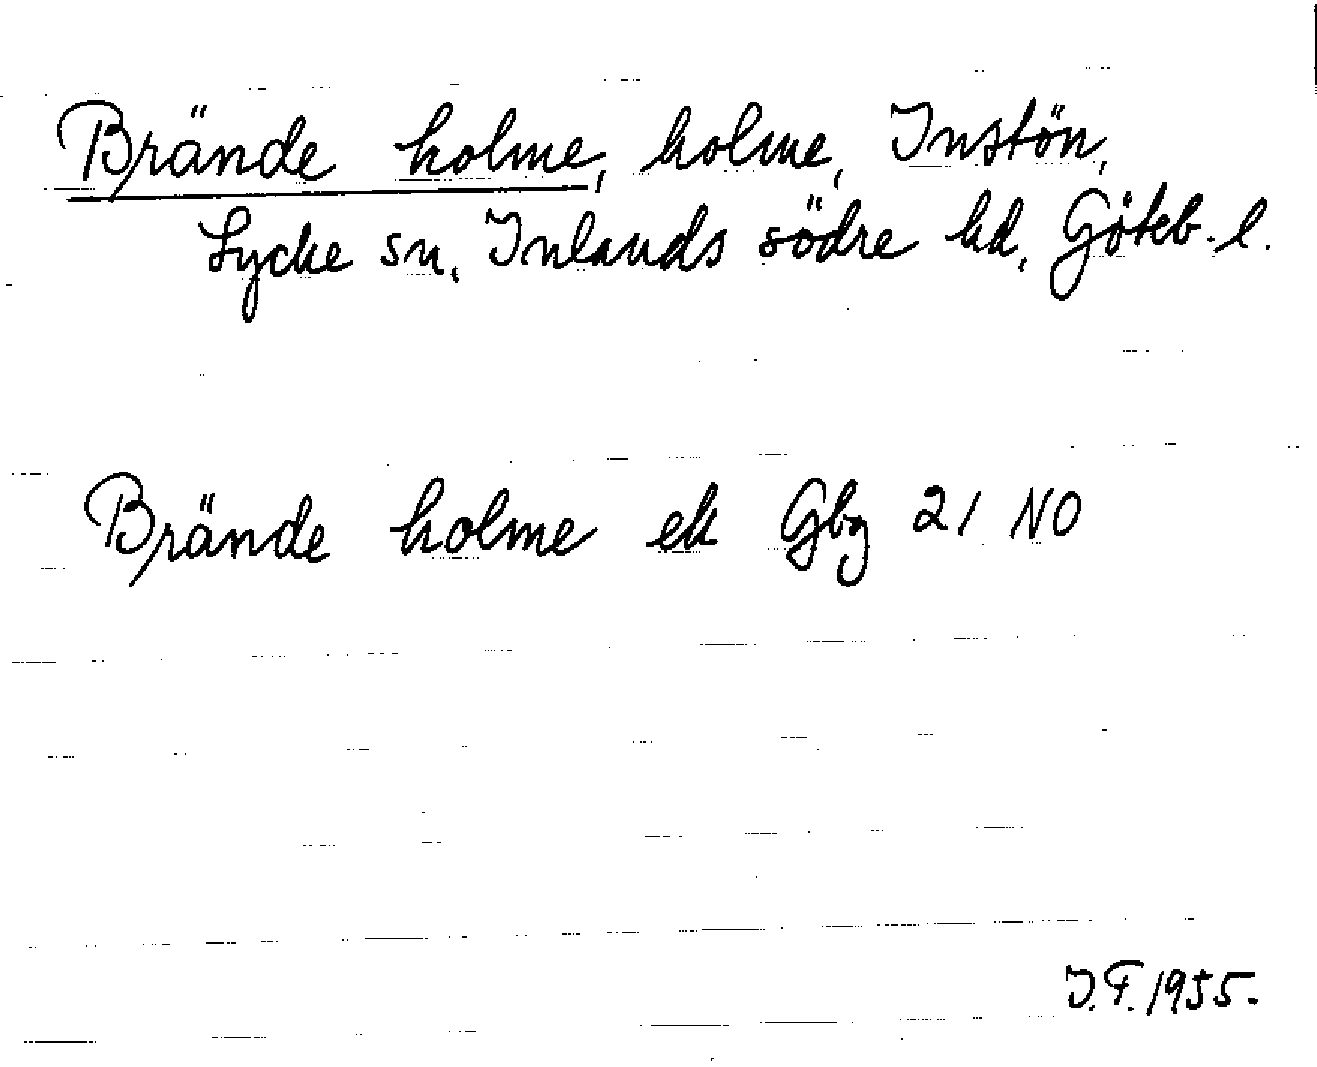 Brände holme, holme, Instön,
Lycke sn, Inlands södre hd, Göteb. l.
Brände holme ek Gbg 21 NO
J.F. 1955.